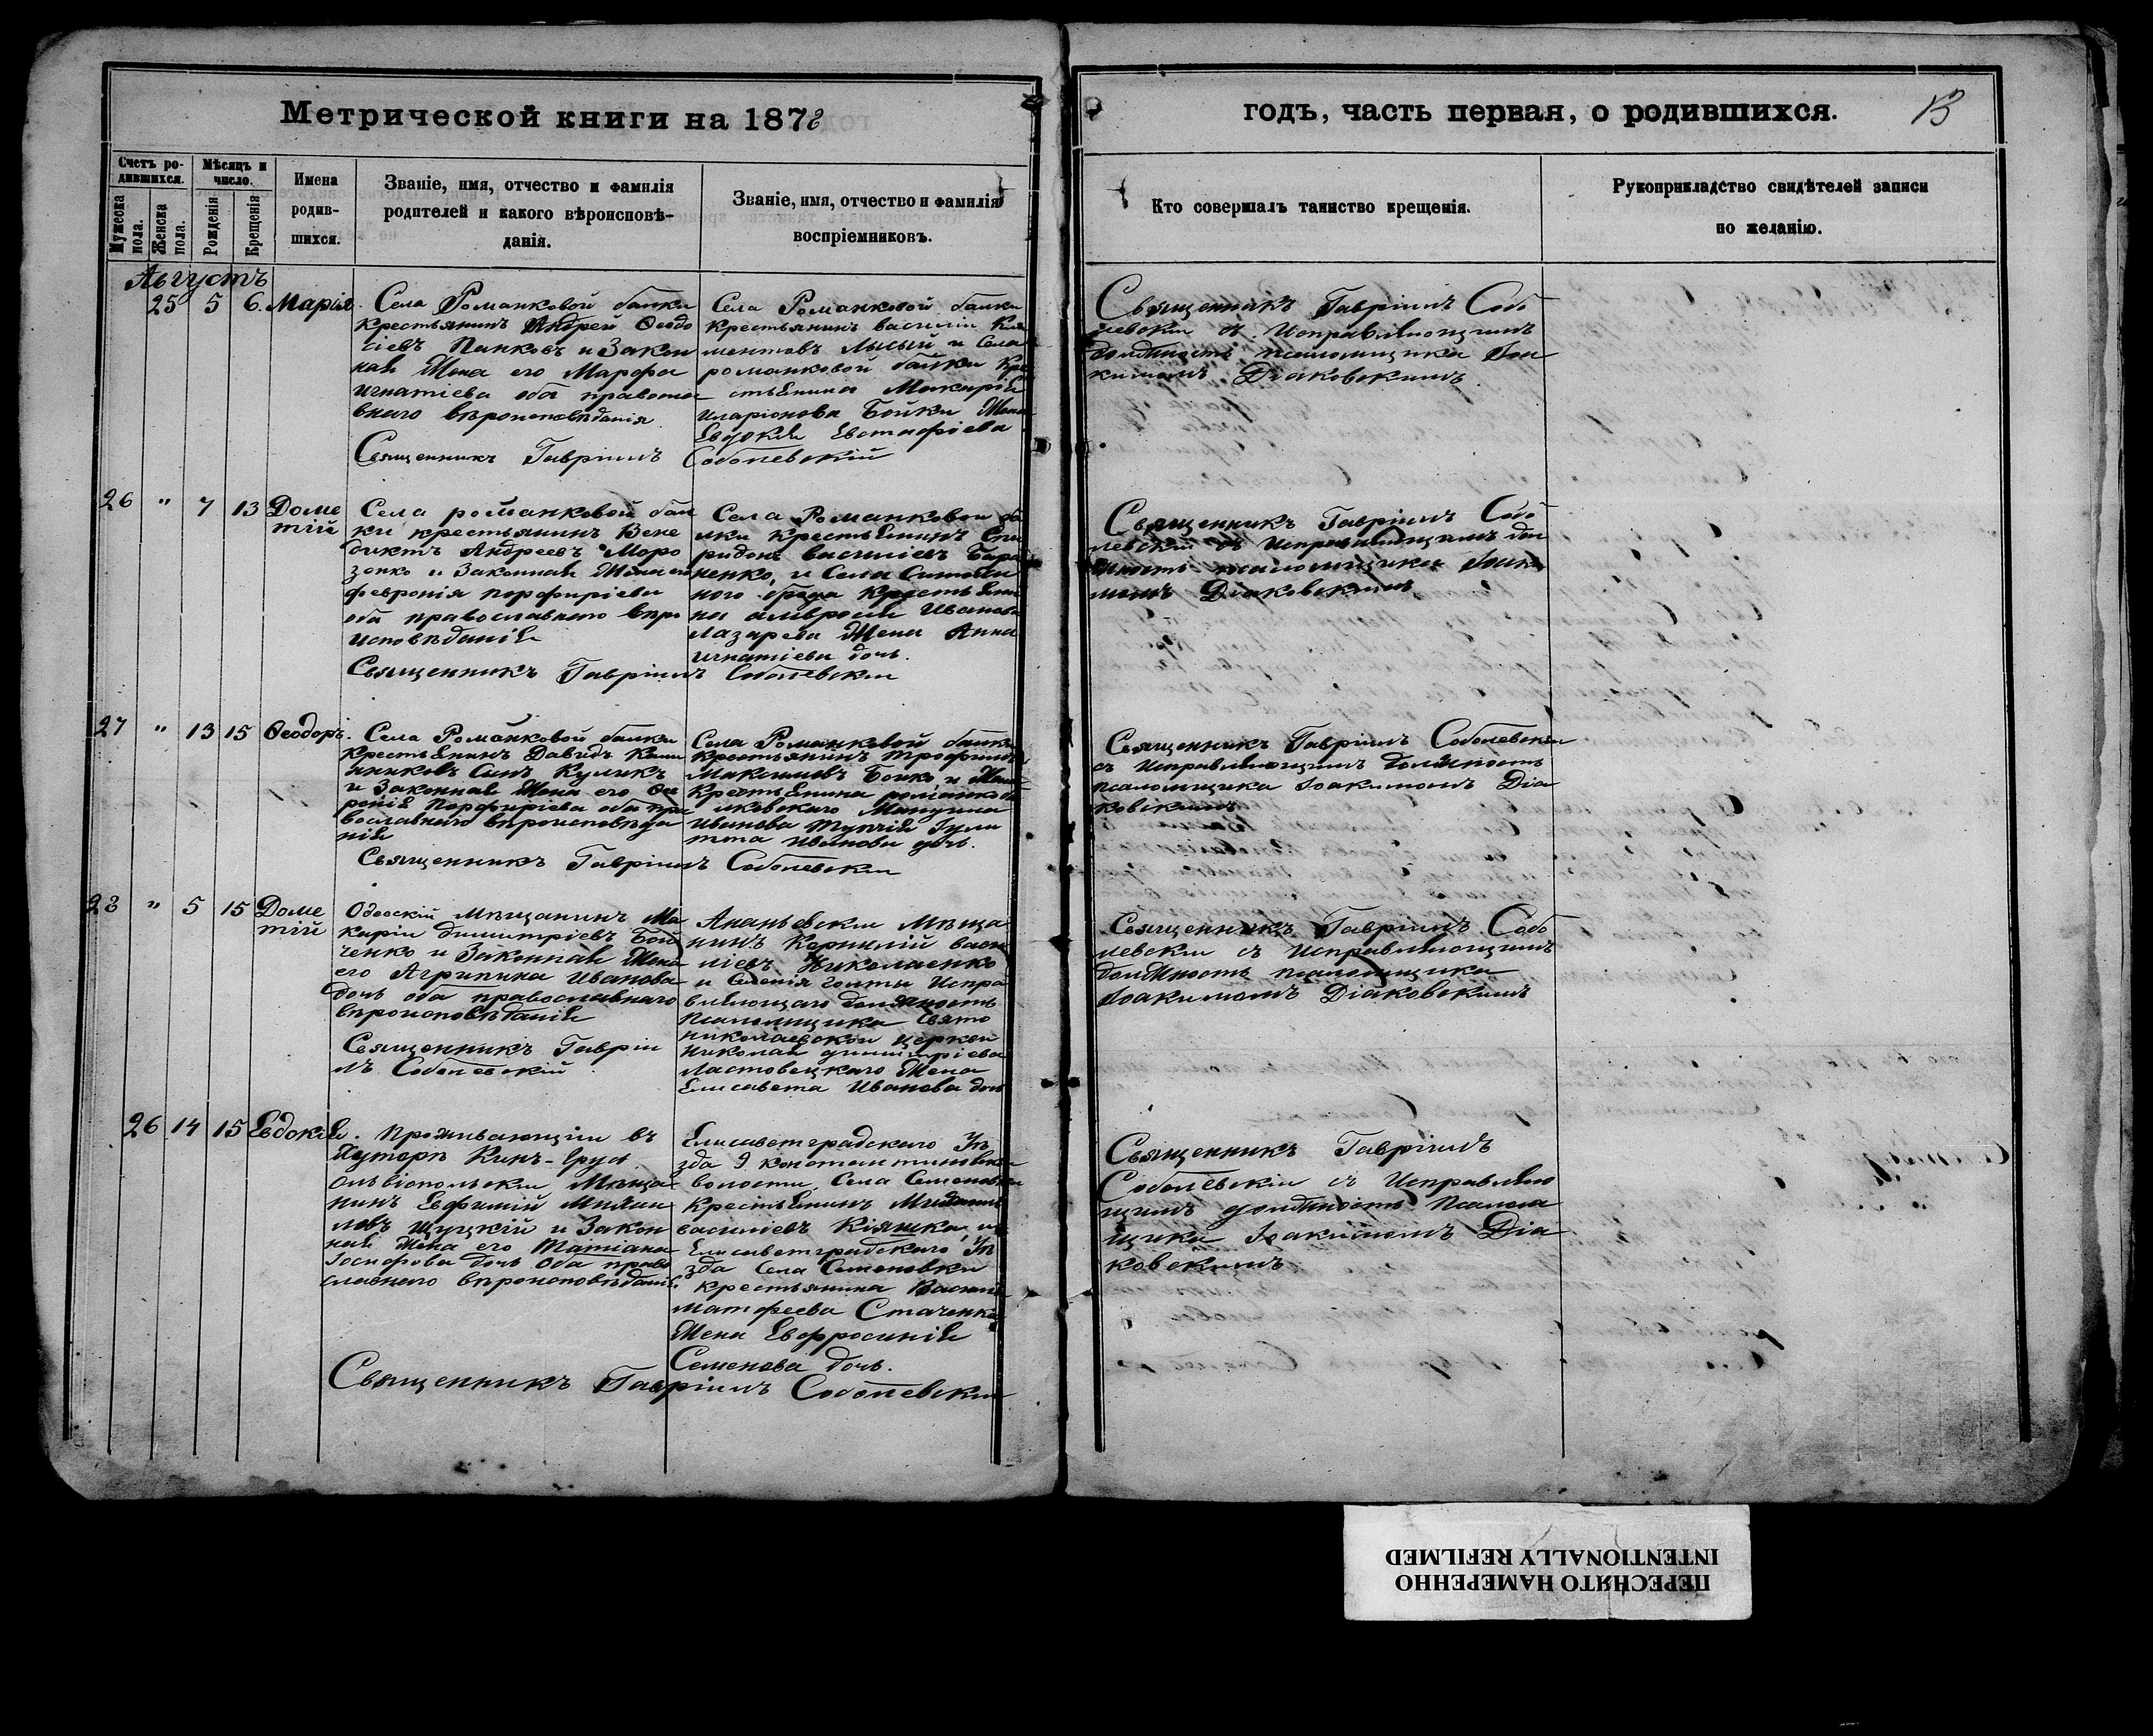 Метрической книги на 1872
годъ, часть первая, о родившихся.
13
Счетъ ро-
дившихся.
Мужеска
пола.
Женска
пола.
Мѣсяцъ и
число.
Рожденія
Крещенія
Имена
родив-
шихся.
Званіе, имя, отчество и фамилія
родителей и какого вѣроисповѣ-
данія.
Званіе, имя, отчество и фамилія
воспріемниковъ.
Кто совершалъ таинство крещенія.
Рукоприкладство свидѣтелей записи
по желанію.
Августъ
25 5 6. Марія.
Села Романковой балки
Крестьянинъ Андрей Ѳеодо
сіевъ Панковъ и Закон
ная Жена его Марфа
Игнатіева оба правосла
внаго вѣроисповѣданія
Села Романковой балки
Крестьянинъ василіи Кли
ментовъ Лысый и Села
романковой балки Кре
стьянина Макарія
Иларіонова Бойки Жена
Евдокія Евстафіева
Священникъ Гавріилъ Соболевскій
Священникъ Гавріилъ Собо
левскіи съ Исправляющимъ
должность псаломщика Іоа
кимомъ Діаковскимъ
26 " 7 13 Доме
тій
Села романковой бал
ки крестьянинъ Вене
диктъ Андреевъ Моро
зенко и Законная Жена его
февронія порфиріева
оба православнаго вѣро
исповѣданія
Села Романковои ба
лки Крестьянинъ Спи
ридонъ василіевъ Бара
ненко, и Села
ного Крестьяни
на амвросія Иванова
Лазарева Жена Анна
игнатіева дочь.
Священникъ Гавріилъ Соболевскіи
Священникъ Гавріилъ Собо
левскій съ Исправляющимъ дол
жность псаломщика Іоаки
момъ Діаковскимъ
27 " 13 15 Ѳеодоръ.
Села Романковой балки
Крестьянинъ Давидъ
Сынъ Куликъ
и Законная Жена его Фев
ронія Порфиріева оба пра
вославнаго вѣроисповѣда
нія
Села Романковой балки
Крестьянинъ трофимъ
Максимовъ Бойко и
Крестьянина романкоба
лковскаго
Иванова
Иванова дочь.
Священникъ Гавріилъ Соболевскіи
Священникъ Гавріилъ Соболевскіи
съ Исправляющимъ Должность
псаломщика Іоакимомъ Діа
ковскимъ
28 " 5 15 Доме
тій
Одесскій Мѣщанинъ Ма
каріи димитріевъ Бой
ченко и Законная Жена
его Агрипина Иванова
дочь оба православнаго
вѣроисповѣданія
Ананьевскіи Мѣща
нинъ Корнилій васи
ліевъ Николаенко
и Селенія голты Испра
вляющаго должность
Псаломщика Свято
николаевскои церкви
николая димитріева
Ластовецкаго Жена
Елисавета Иванова дочь
Священникъ Гавріи
лъ Соболевскій
Священникъ Гавріилъ Собо
левскіи съ Исправляющимъ
должность псаломщика
Іоакимомъ Діаковскимъ
26 14 15 Евдокія.
Проживающіи въ
Хуторѣ Кинъ-Груст
Ольвіопольскіи Мѣща
нинъ Евфимій Михаи
ловъ Щуцкій и Закон
ная Жена его Татіана
Іосифова дочь Оба право
славнаго вѣроисповѣданія.
Елисаветградскаго Уѣ
зда 9 константиновск
волости, Села Семеновки
Крестьянинъ
василіевъ Кіяшка, и
Елисаветградскаго Уѣ
зда Села Семеновки
Крестьянина Василія
матфеева Стаченка
Жена Евфросинія
Семенова дочь.
Священникъ Гавріилъ Соболевскіи
Священникъ Гавріилъ
Соболевскіи съ Исправляю
щимъ должность псалом
щика Іоакимомъ Діа
ковскимъ
ПЕРЕСНЯТО НАМЕРЕННО
INTENTIONALLY REFILMED